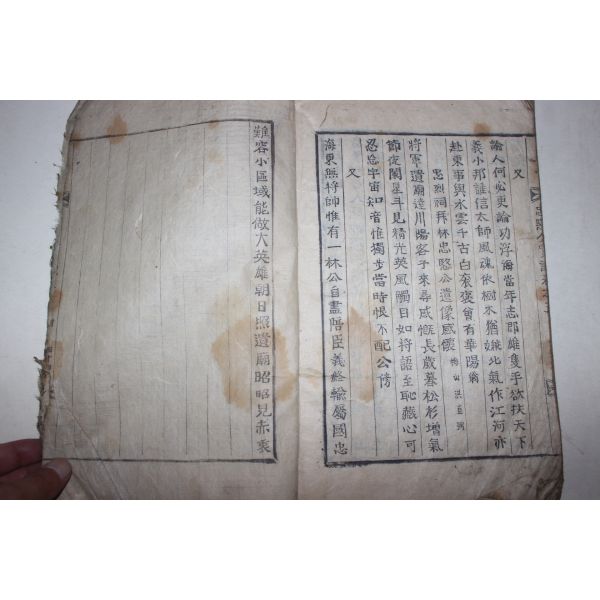 又
論人何必更論功浮海當年志郎雄隻手欲扶天下
義小邦誰信太師風魂依樹木猶嫌北氣作江河亦
赴東事與水雲千古白衮褒曾有華陽翁
忠烈祠拜林忠愍公遺像感懷 梅山洪直弼
將軍遺廟達川陽客子來尋感慨長歲暮松杉增氣
節夜闌星斗見精光英風觸目如將語至恥藏心可
忍忘宇宙知音惟獨步當時恨不配公傍
又
海東無將帥惟有一林公自盡陪臣義終輸屬國忠
難容小區域能做大英雄朝日照遺廟昭昭見赤衷